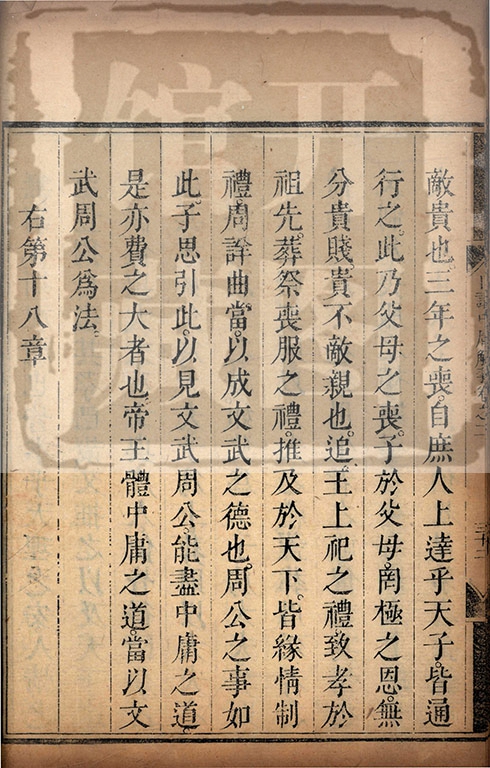 敵貴也。三年之喪。自庶人上達乎天子。皆通
行之。此乃父母之喪。子於父母。罔極之恩。無
分貴賤。貴不敵親也。追王上祀之禮。致孝於
祖先。葬祭喪服之禮。推及於天下。皆緣情制
禮。周詳曲當。以成文武之德也。周公之事如
此。子思引此。以見文武周公。能盡中庸之道。
是亦費之大者也。帝王體中庸之道。當以文
武周公爲法。
右第十八章